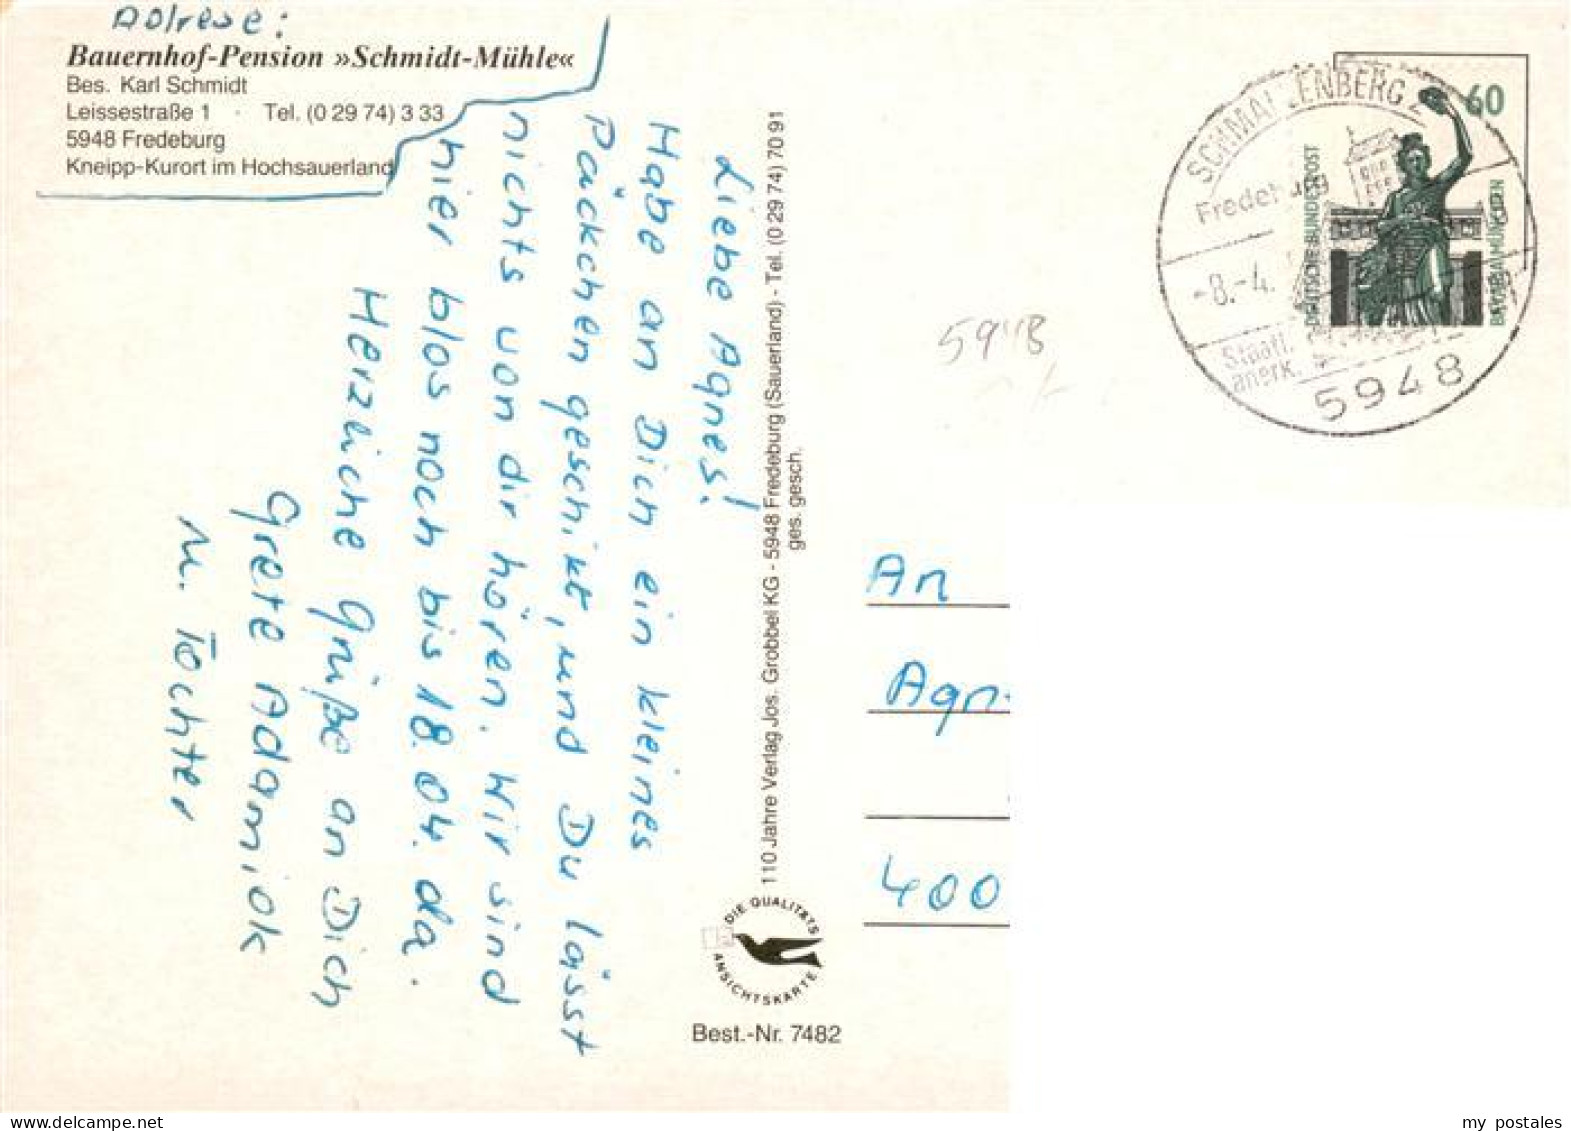 Adrese:
Bauernhof-Pension »Schmidt-Mühle«
Bes. Karl Schmidt
Leissestraße 1 · Tel. (0 29 74) 3 33
5948 Fredeburg
Kneipp-Kurort im Hochsauerland
Liebe Agnes!
Habe an Dich ein kleines
Päckchen geschikt, und Du lässt
nichts von dir hören. Wir sind
hier blos noch bis 18.04. da.
Herzliche Grüße an Dich
Grete Adamiok
u. Tochter
110 Jahre Verlag Jos. Grobbel KG - 5948 Fredeburg (Sauerland) - Tel. (0 29 74) 70 91
ges. gesch.
DIE QUALITÄTS
ANSICHTSKARTE
Best.-Nr. 7482
SCHMALLENBERG 2
Fredeburg
-8.-4.
Staatl.
anerk.
5948
60
DEUTSCHE BUNDESPOST
BAVARIA MÜNCHEN
5948
An
Agn
400
my_postales